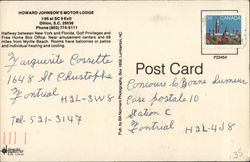 HOWARD JOHNSON'S MOTOR LODGE
I-95 at SC 9 Exit
Dillon, S.C. 29536
Phone (803) 774-5111
Halfway between New York and Florida. Golf Privileges and
Free Home Box Office. Near amusement centers and 68
miles from Myrtle Beach. Rooms have balconies or patios
and individual heating and cooling.
Marguerite Cossette
1648 St Christophe
Montreal
H2L-3W8
Tel- 521-3147
P23454
Post Card
Concours G. Bonne
Case postale 10
Station C
Montreal
H2L-4J8